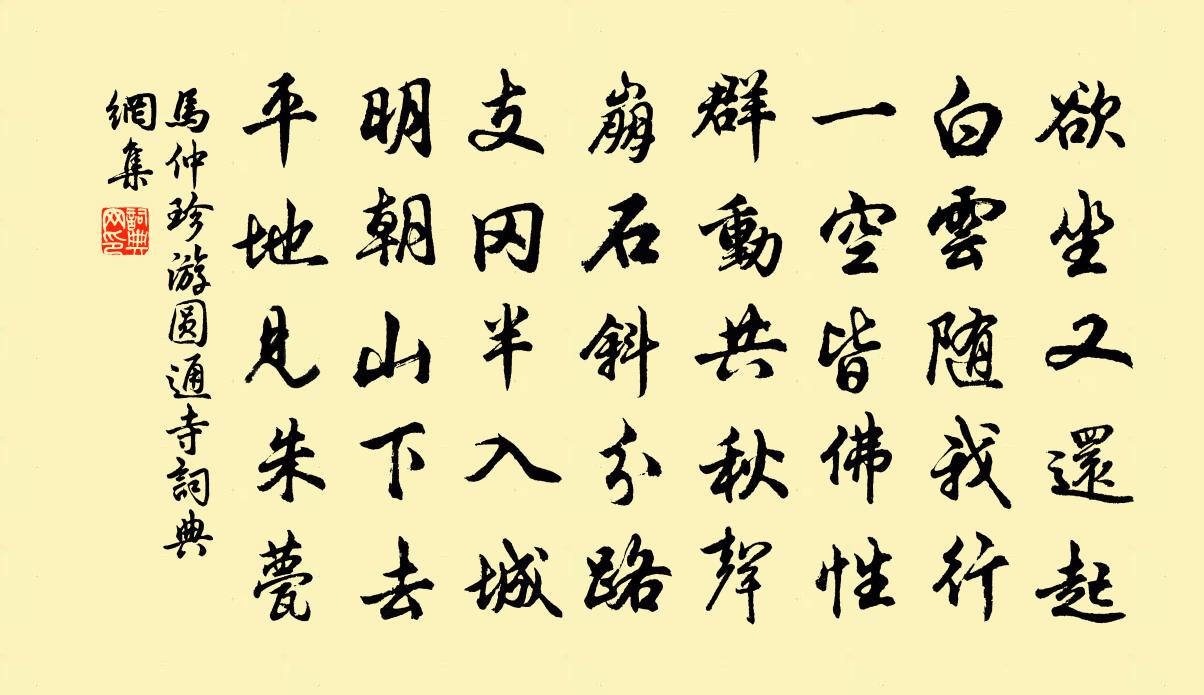 欲坐又還起
白雲随我行
一空皆佛性
群動共秋聲
崩石斜分路
支冈半入城
明朝山下去
平地見朱甍
馬仲珍游圆通寺詞典
網集
詞典
网印